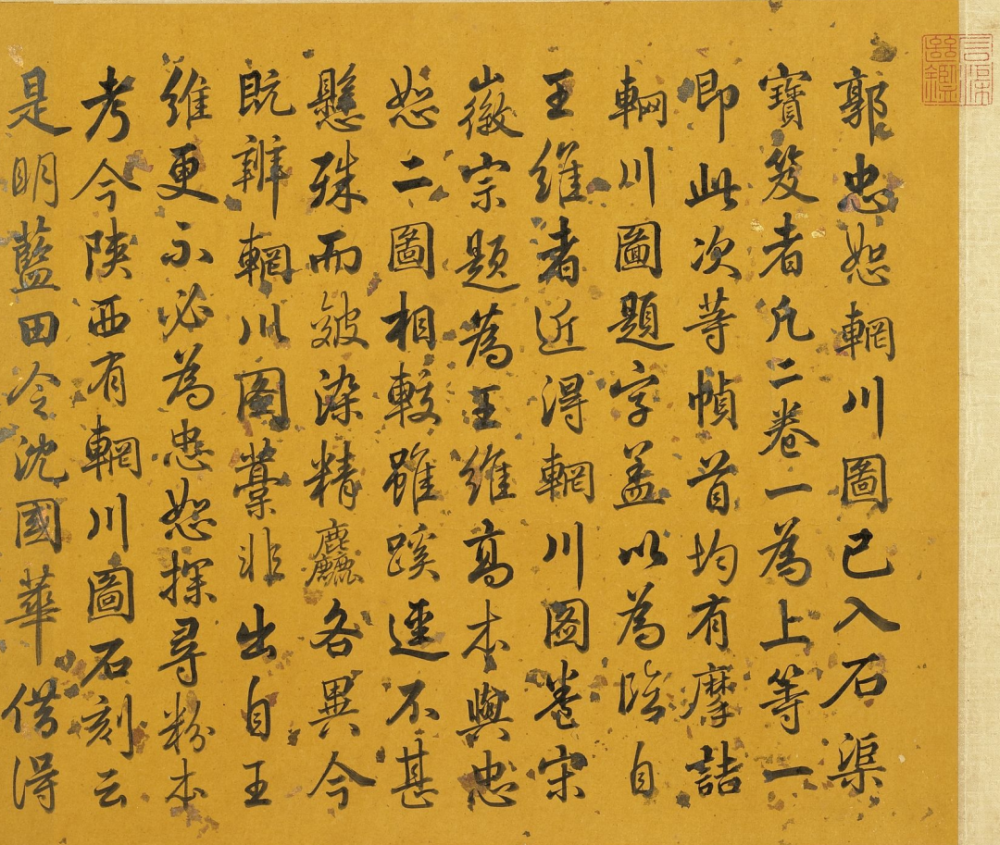 郭忠恕輞川圖已入石渠
寶笈者凡二卷一為上等一
即此次等幀首均有摩詰
輞川圖題字蓋以為臨自
王維者近得輞川圖卷宋
徽宗題為王維高本與忠
恕二圖相較雖蹊逕不甚
懸殊而皴染精麤各異今
既辨輞川圖藁非出自王
維更不必為忠恕探尋粉本
考今陝西有輞川圖石刻云
是明藍田令沈國華借得